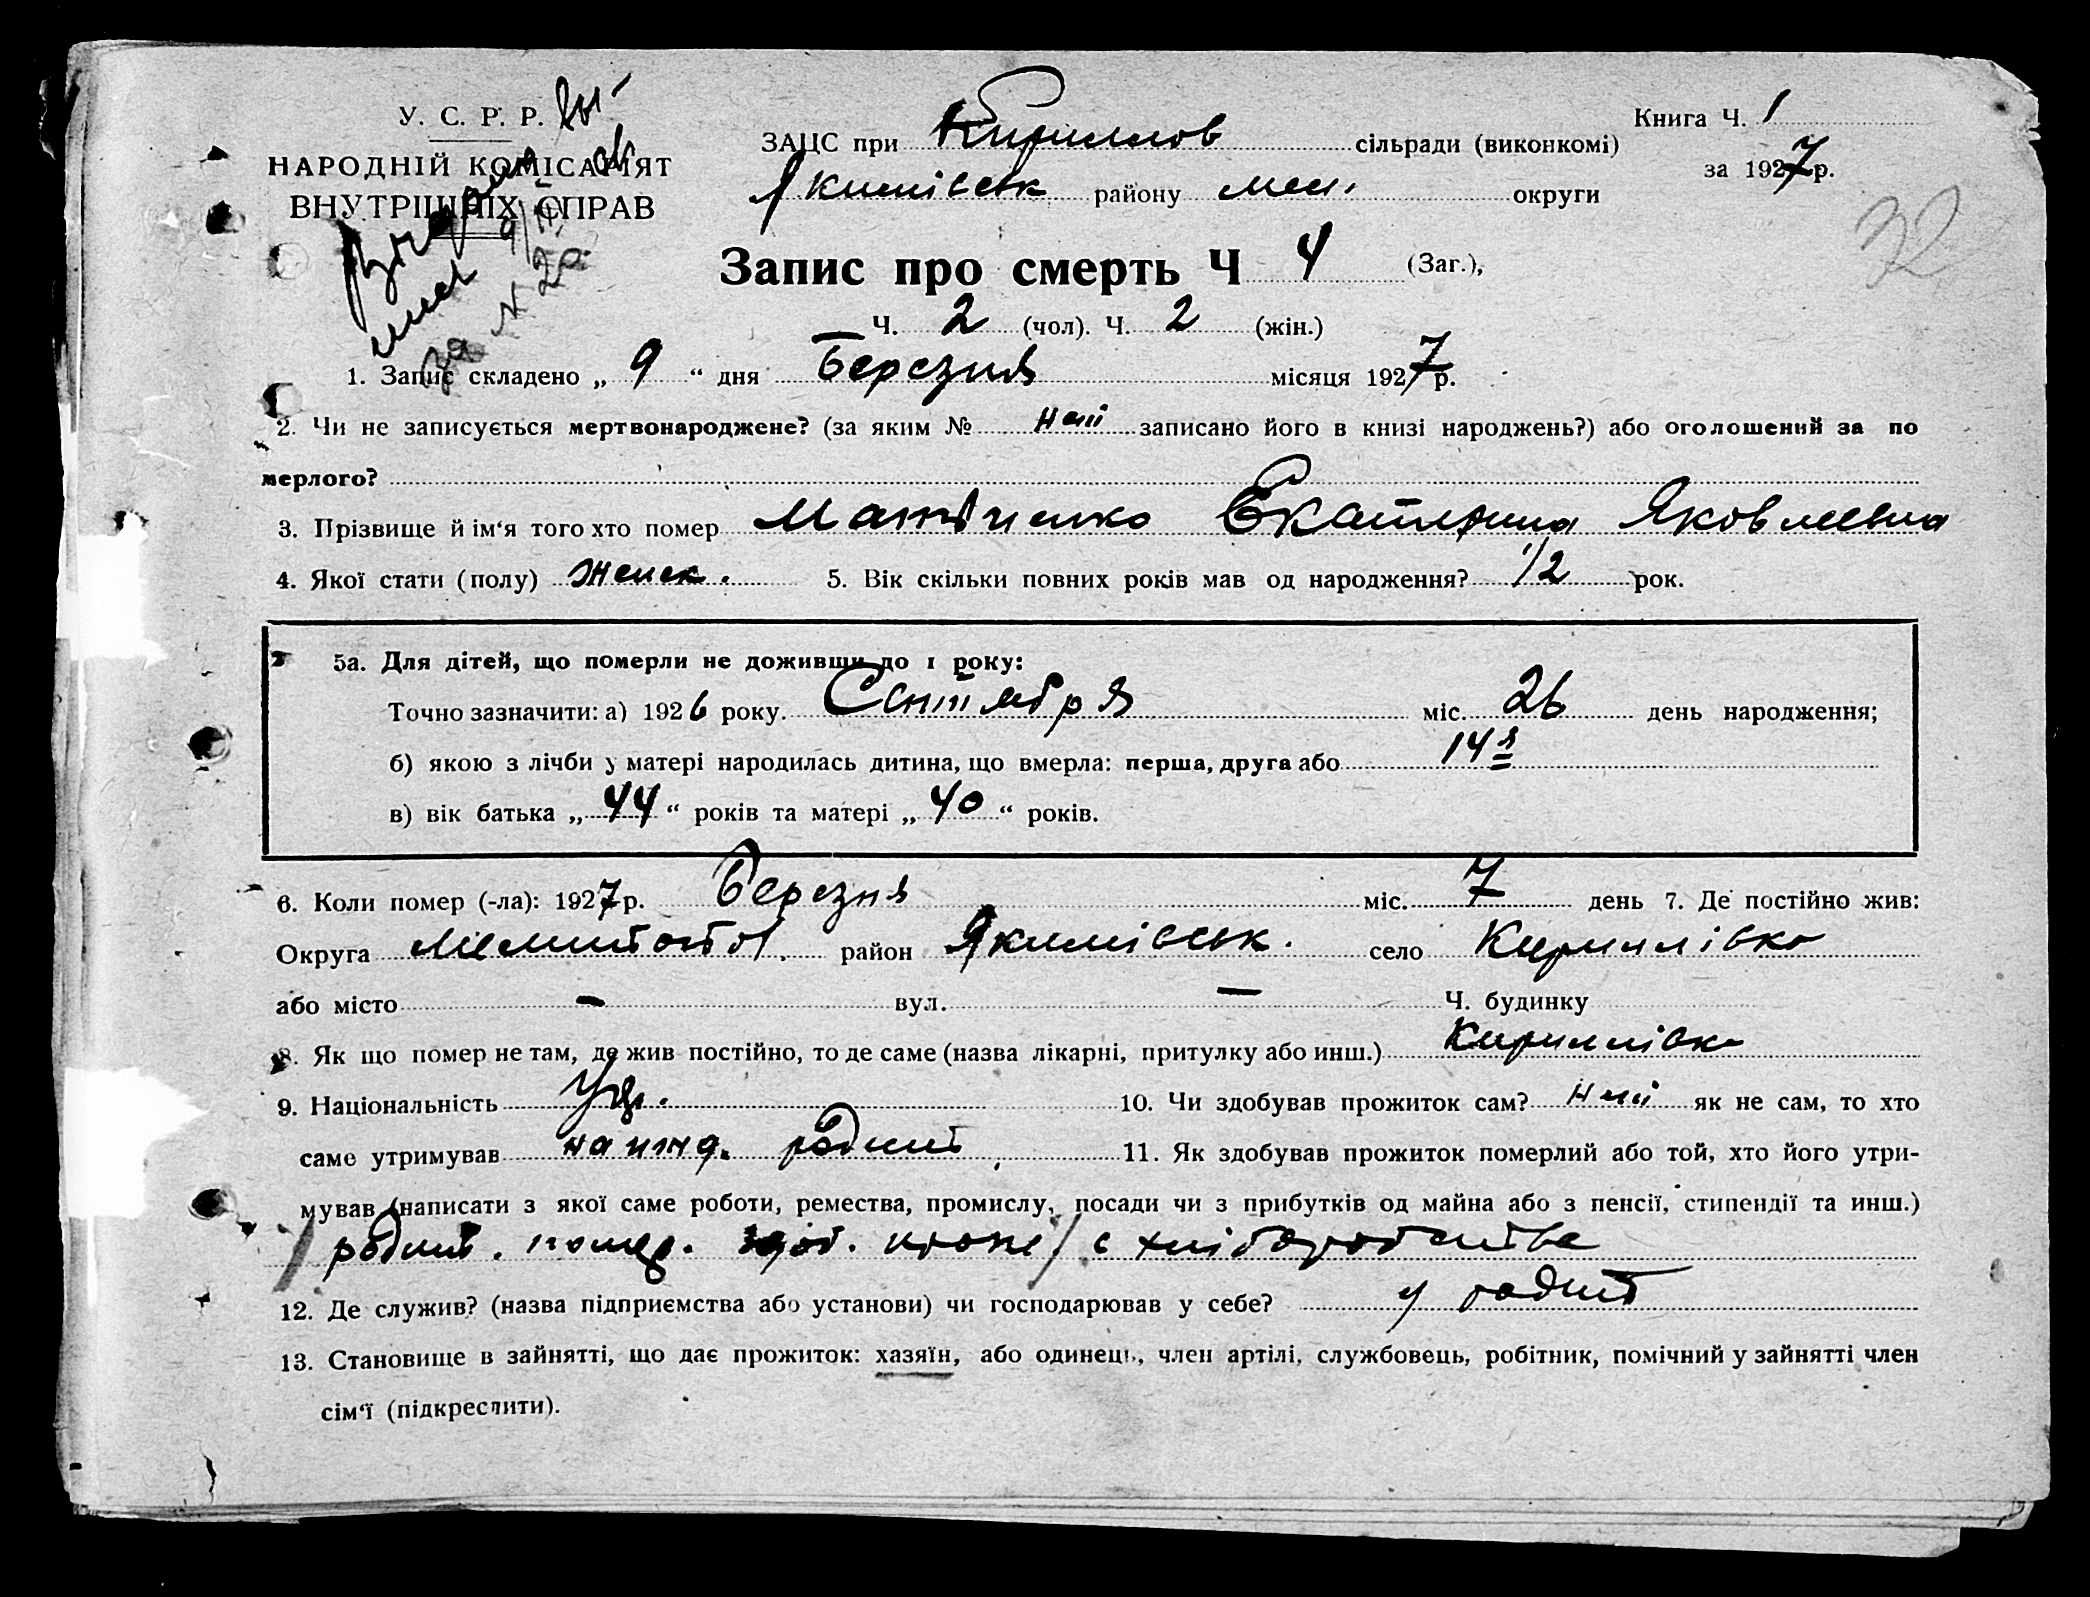 У. С. Р. Р.
НАРОДНІЙ КОМІСАРІЯТ
ВНУТРІШНІХ СПРАВ
ЗАЦС при Кириллов сільради (виконкомі)
Якимівськ району мел. округи
Книга Ч. 1
за 1927 р.
32
Запис про смерть Ч 4 (Заг.),
Ч. 2 (чол). Ч. 2 (жін.)
1. Запис складено „ 9 “ дня Березня місяця 1927 р.
2. Чи не записується мертвонароджене? (за яким № ні записано його в книзі народжень?) або оголошений за по
мерлого?
3. Прізвище й ім‘я того хто помер Матвіиенко Екатерина Яковлевна
4. Якої стати (полу) женск. 5. Вік скільки повних років мав од народження? 1/2 рок.
5а. Для дітей, що померли не доживши до 1 року:
Точно зазначити: а) 1926 року. Сентября міс. 26 день народження;
б) якою з лічби у матері народилась дитина, що вмерла: перша, друга або 14 я
в) вік батька „ 44 “ років та матері „ 40 “ років.
6. Коли помер (-ла): 1927 р. Березня міс. 7 день 7. Де постійно жив:
Округа район Якимівськ. село Кириллівка
або місто – вул. – Ч. будинку
8. Як що помер не там, де жив постійно, то де саме (назва лікарні, притулку або инш.) Кириллівка
9. Національність Укр. 10. Чи здобував прожиток сам? ні як не сам, то хто
саме утримував родит. 11. Як здобував прожиток померлий або той, хто його утри-
мував (написати з якої саме роботи, ремества, промислу, посади чи з прибутків од майна або з пенсії, стипендії та инш.)
родит. с хліборобства
12. Де служив? (назва підприємства або установи) чи господарював у себе? у родит
13. Становище в зайнятті, що дає прожиток: хазяїн, або одинець, член артілі, службовець, робітник, помічний у зайнятті член
сім‘ї (підкреслити).